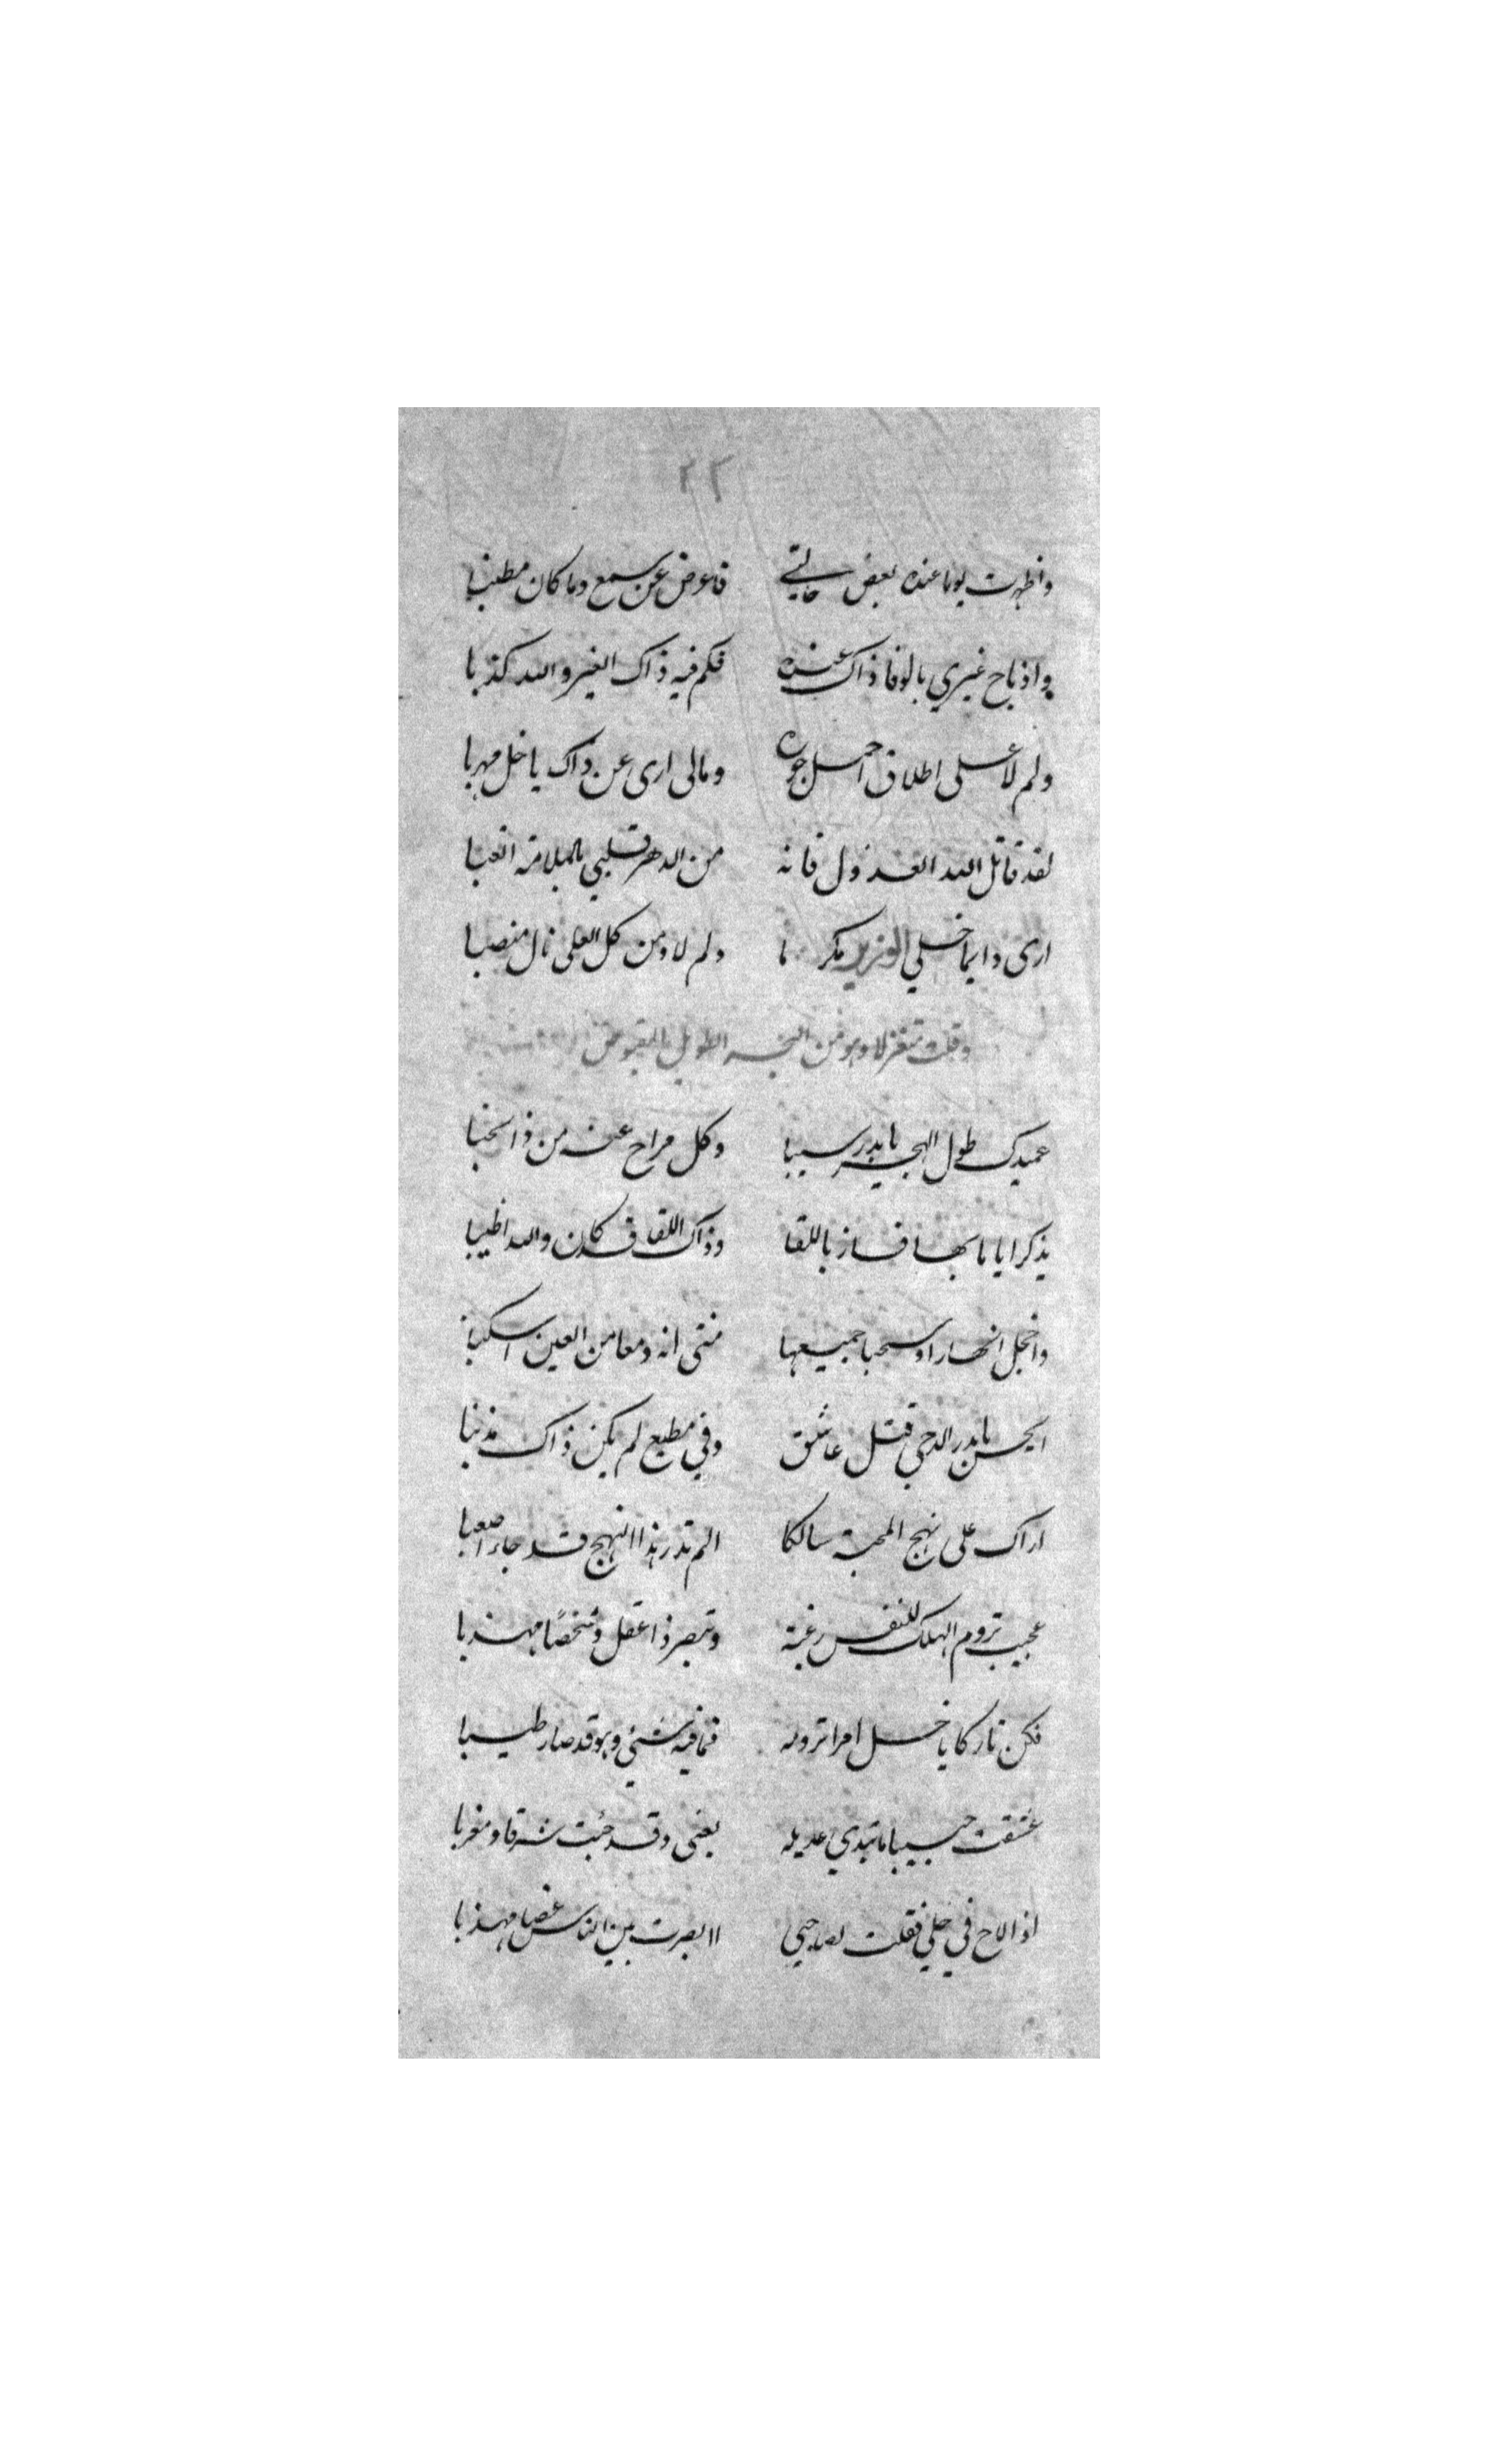 ٢٢
واظهرت يوما عنده بعض حالتي فاعرض عن سمع وما كان مطنبا
واذ باح غيري بالوفا ذاك عنده فكم فيه ذاك الغير والله كذبا
ولم لا على اطلاق احمل جوره ومالى ارى عن ذاك يا خل مهربا
لقد قاتل الله العذول فانه من الدهر قلبي بالملامة اتعبا
ارى دايما خلي العزيز مكرما ولم لا ومن كل العلى نال منصبا
وقلت متغزلا وهو من البحر الطويل المقبوض
عميدك طول الهجر يا بدر سيبا وكل مراح عنه من ذا
يذكر اياما بها فاز باللقا وذاك اللقا قد كان والله اطيبا
واخجل انهارا وسحبا جميعها متى انه دمعا من العين اسكبا
ايحسن يا بدر الدجى قتل عاشق وفي مطيع لم يكن ذاك مذنبا
اراك على نهج المحبة سالكا الم تدر هذا النهج قد جاء اصعبا
عجيب تروم الهلك للنفس رغبة وتبصر ذا عقل وشخصًا مهذبا
فكن تاركا يا خل امرا ترومه فما فيه شيئ وهو قد صار طيبا
عشقت حبيبا ما تبدي عديله بعيني وقد جُبت شرقا ومغربا
اذا لاح في حلي فقلت لصاحبي اابصرت بين الناس غصنا مهذبا